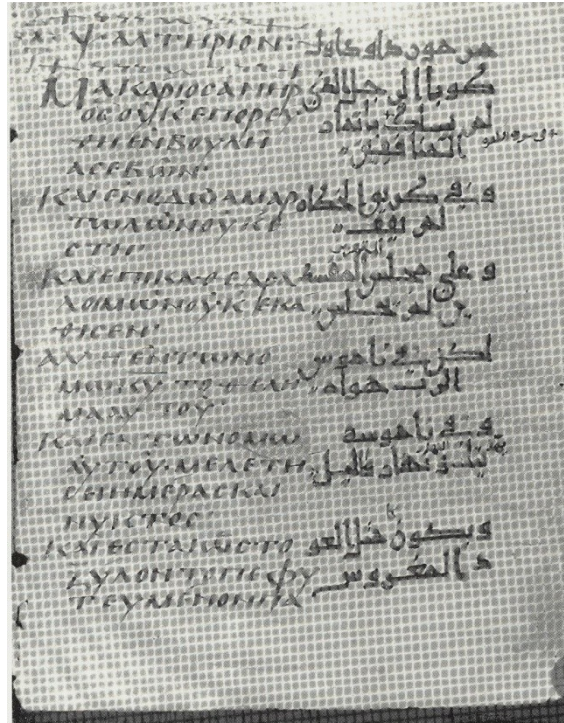 ΜΑΚΑΡΙΟCΑΝΗΡ
ΟCΟΥΚΕΠΟΡΕΥ
ΘΗΕΝΒΟΥΛΗ
ΑCΕΒΩΝ·
ΚΑΙΕΝΟΔΩΑΜΑΡ
ΤΩΛΩΝΟΥΚΕ
CΤΗ·
ΚΑΙΕΠΙΚΑΘΕΔΡΑ
ΛΟΙΜΩΝΟΥΚΕΚΑ
ΘΙCΕΝ·
ΑΛΛΗΕΝΤΩΝΟ
ΜΩΚΥ ΤΟΘΕΛΗ
ΜΑΑΥΤΟΥ
ΚΑΙΕΝΤΩΝΟΜΩ
ΑΥΤΟΥ·ΜΕΛΕΤΗ
CΕΙΗΜΕΡΑCΚΑΙ
ΝΥΚΤΟC·
ΚΑΙΕCΤΑΙΩCΤΟ
ΞΥΛΟΝΤΟΠΕΦΥ
ΤΕΥΜΕΝΟΝΠΑ
طوبا الرجل الذي
لم يسلك
المنافقين
وفي طريق الخطاه
لم يقف
وعلى مجلس
ين لم يجلس
لكن في ناموس
الرب هواه
وفي ناموسه
نهار وليل
ويكون مثل العو
د المغروس